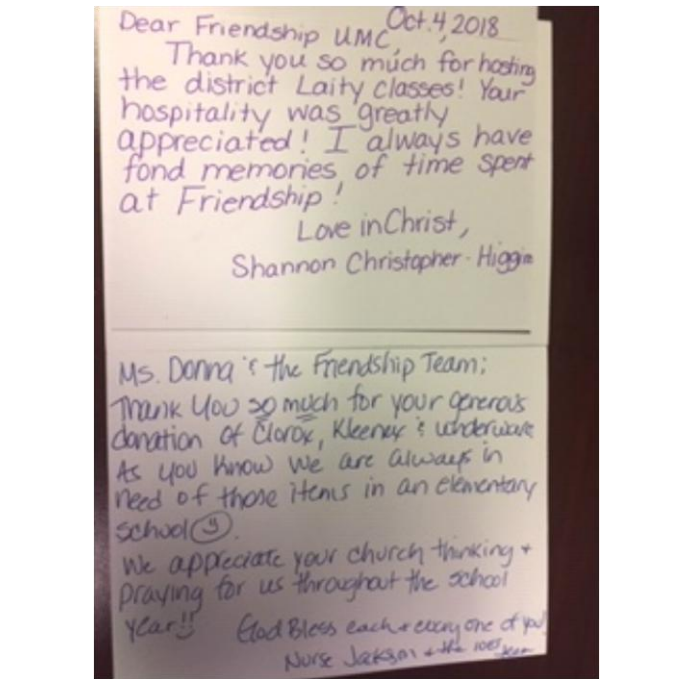 Oct. 4, 2018
Dear Friendship UMC,
Thank you so much for hosting
the district Laity classes! Your
hospitality was greatly
appreciated! I always have
fond memories of time spent
at Friendship!
Love in Christ,
Shannon Christopher-Higgin
Ms. Donna & the Friendship Team;
Thank you so much for your generous
donation of Clorox, Kleenex & underware
As you know we are always in
need of those items in an elementary
school
We appreciate your church thinking +
praying for us throughout the school
year!!
God Bless each + every one of you!
Nurse Jackson + the